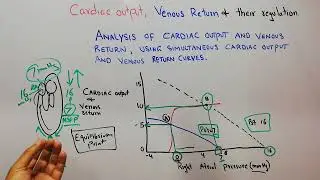 Cardiac output, Venous Return & their regulation
ANALYSIS OF CARDIAC OUTPUT AND VENOUS
RETURN, USING SIMULTANEOUS CARDIAC OUTPUT
AND VENOUS RETURN CURVES.
7 mmHg
16
7
CARDIAC OUTPUT
&
VENOUS
RETURN
Equilibrium
Point
15
10
5
0
A
B
Psf 16
-4
0
4
8
12
16
Right Atrial pressure (mmHg)